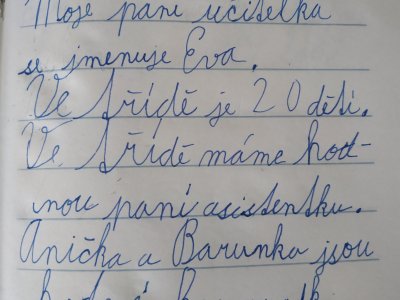 Moje paní učitelka
se jmenuje Eva.
Ve třídě je 20 dětí.
Ve třídě máme hod-
nou paní asistentku.
Anička a Barunka jsou